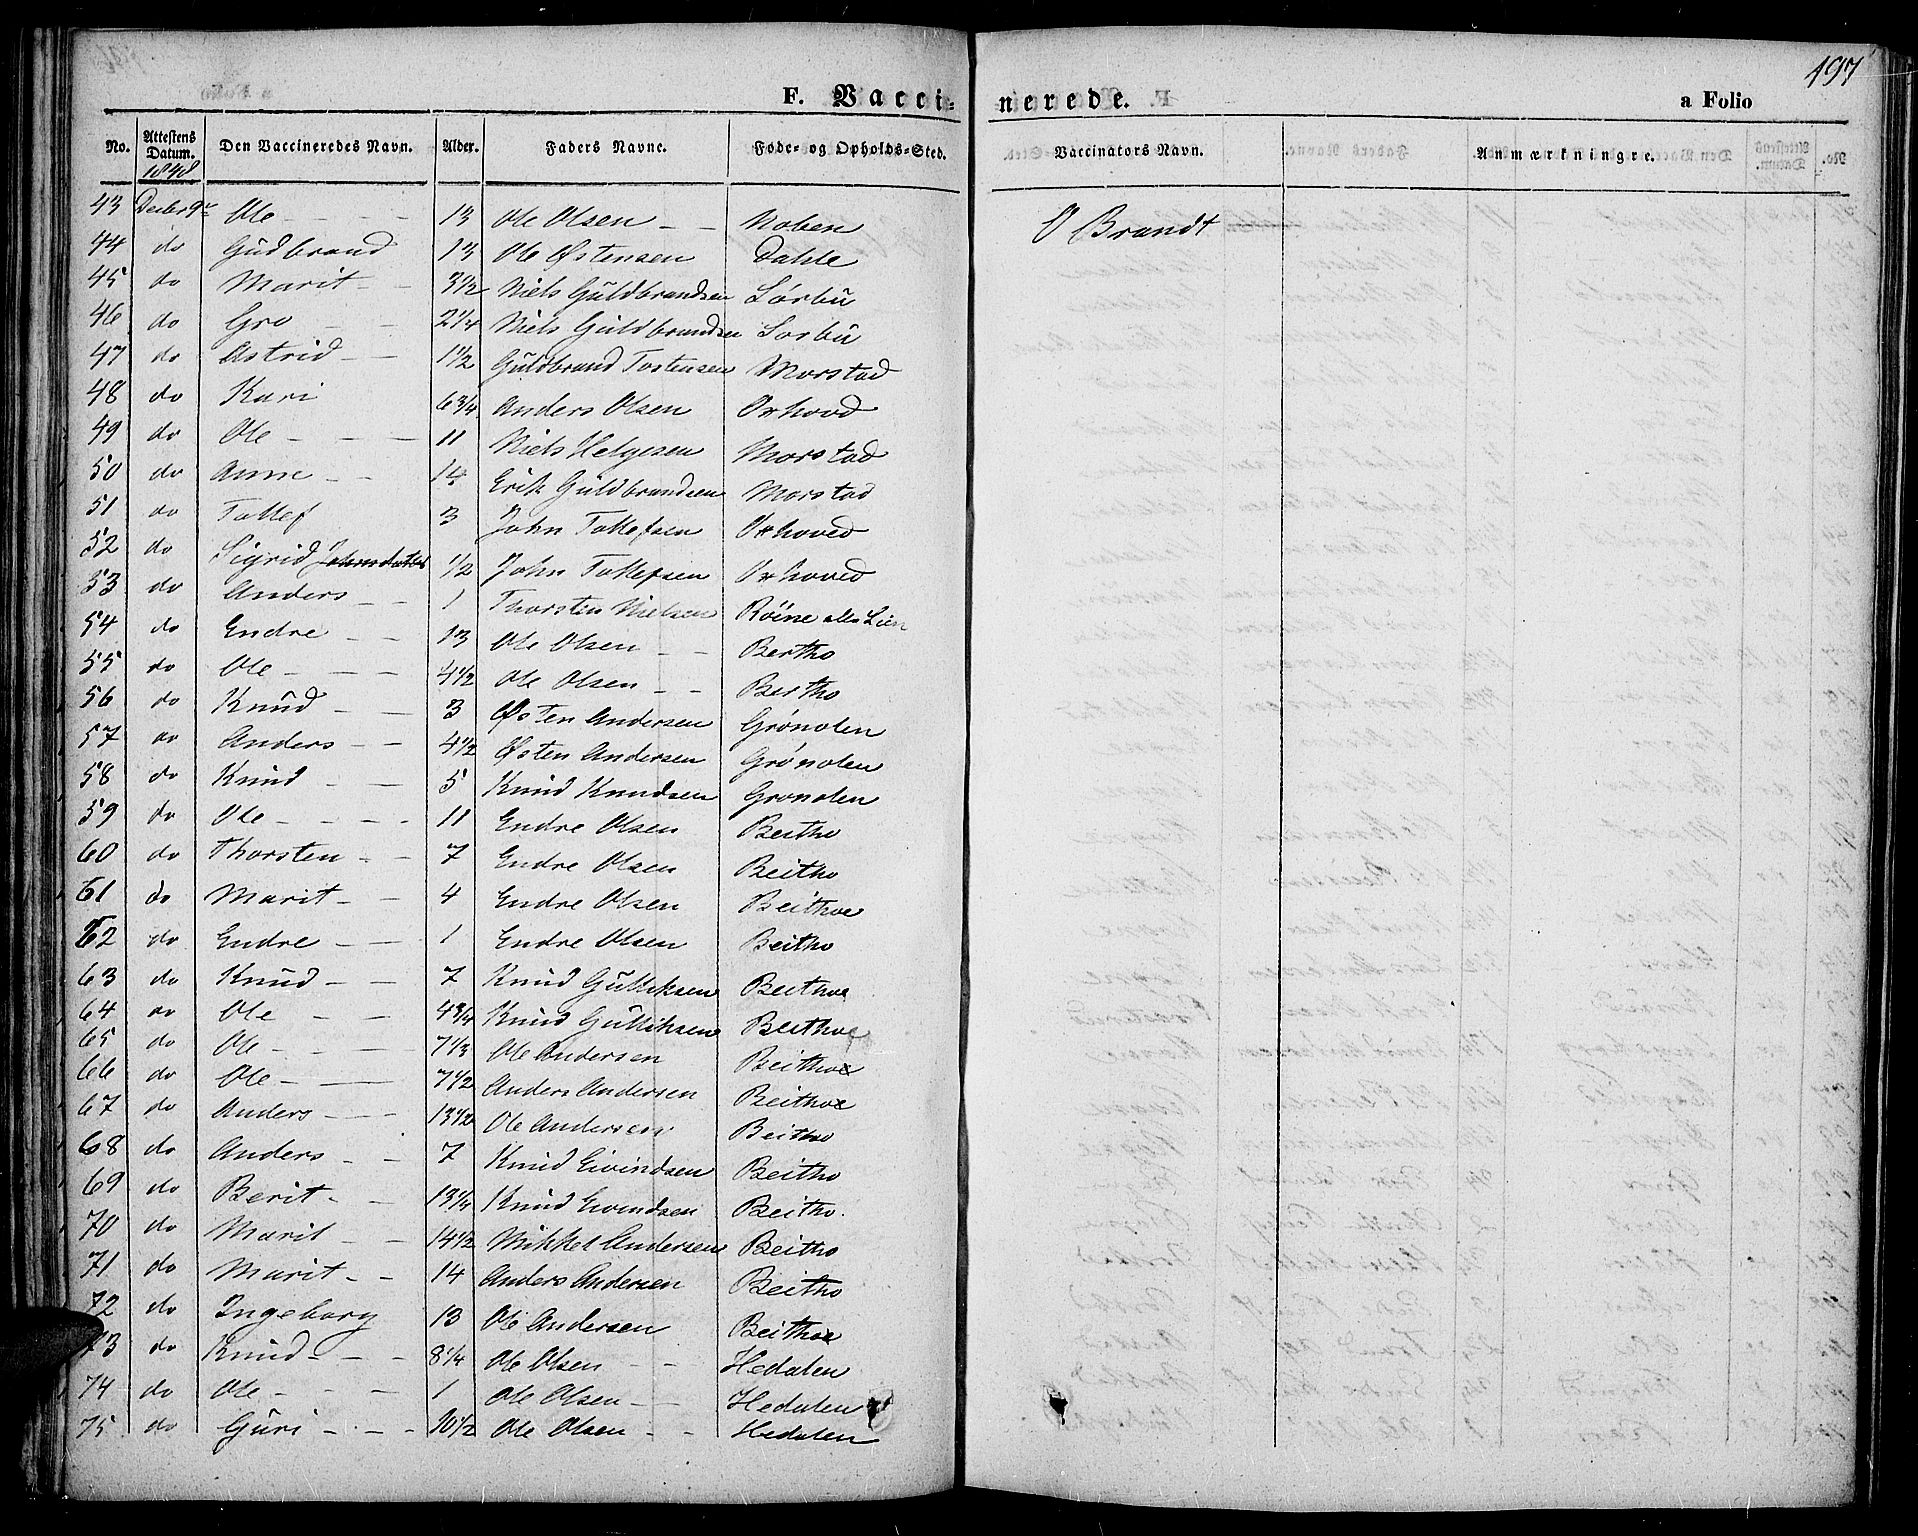 497
F. Vacci-
nerede.
a Folio
No. Attestens Datum. Den Vaccineredes Navn. Alder. Faders Navne. Føde- og Opholds-Sted. Vaccinators Navn. Anmærkningre.
1848
43 Decbr 9de Ole - - - - 13 Ole Olsen - - Noben O Brandt
44 do Gudbrand 13 Ole Østensen Dahle
45 do Marit - - 3 1/2 Niels Güldbrandsen Sørbü
46 do Gro - - 2 1/4 Niels Güldbrandsen Sorbü
47 do Astrid - - 1 1/2 Güldbrand Tostensen Morstad
48 do Kari 6 3/4 Anders Olsen Orhovd
49 do Ole - - - 11 Niels Helgesen Morstad
50 do Anne - - 14 Erik Güldbrandsen Morstad
51 do Tollef 3 John Tollefsen Orhoved
52 do Sigrid 1/2 John Tollefsen Orhoved
53 do Anders - - 1 Thorsten Nielsen Röine Lien
54 do Endre - - 13 Ole Olsen - - Beitho
55 do Ole - - - 4 1/2 Ole Olsen - - Beitho
56 do Knüd - - 3 Østen Andersen Grønolen
57 do Anders - - 4 1/2 Østen Andersen Grønolen
58 do Knüd - - 5 Knüd Knudsen Gronolen
59 do Ole - - - - 11 Endre Olsen Beitho
60 do Thorsten - - 7 Endre Olsen Beitho
61 do Marit - - 4 Endre Olsen Beithoe
62 do Endre - - 1 Endre Olsen Beitho
63 do Knüd - - 7 Knüd Gülliksen Beithoe
64 do Ole - - 4 3/4 Knüd Gülliksen Beithoe
65 do Ole - - - 7 1/3 Ole Andersen Beithoe
66 do Ole - - 7 1/2 Anders Andersen Beithoe
67 do Anders - - 13 1/2 Ole Andersen Beitho
68 do Anders - - 7 Knüd Eivindsen Beitho
69 do Berit - - 13 1/4 Knüd Eivindsen Beitho.
70 do Marit - - 14 1/2 Mikkel Andersen Beitho
71 do Marit - - 14 Anders Andersen Beitho
72 do Ingeborg 13 Ole Andersen Beithoe
73 do Knüd - - - 8 1/4 Ole Olsen - - Hedalen
74 do Ole - - - 1 Ole Olsen - - Hedalen
75 do Güri - - - 10 1/2 Ole Olsen - - Hedalen